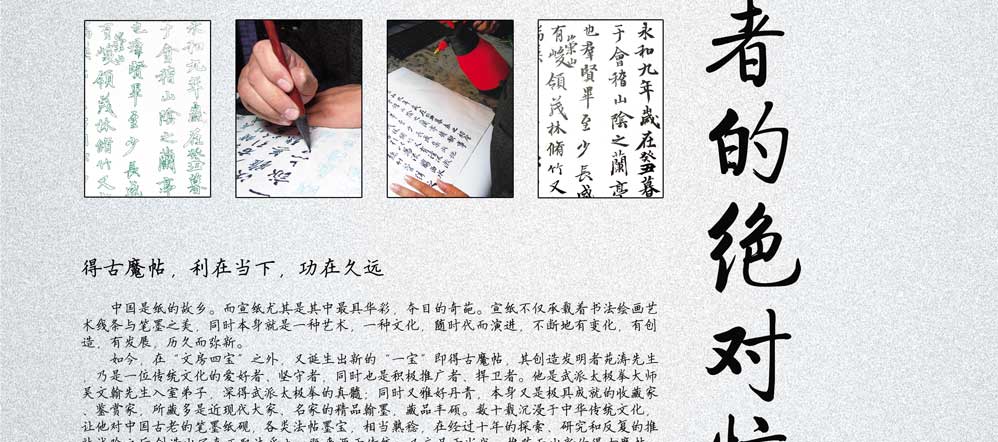 永和九年歲在癸丑暮
于會稽山陰之蘭亭
也羣賢畢至少長咸
有崇山峻領茂林脩竹又
永和九年歲在癸丑暮
于會稽山陰之蘭亭
也羣賢畢至少長咸
有峻領茂林脩竹又
者的绝对
得古魔帖，利在当下，功在久远
中国是纸的故乡。而宣纸尤其是其中最具华彩，夺目的奇葩。宣纸不仅承载着书法绘画艺
术线条与笔墨之美，同时本身就是一种艺术，一种文化，随时代而演进，不断地有变化，有创
造，有发展，历久而弥新。
如今，在“文房四宝”之外，又诞生出新的“一宝”即得古魔帖，其创造发明者苑涛先生
，乃是一位传统文化的爱好者、坚守者，同时也是积极推广者、捍卫者。他是武派太极拳大师
吴文翰先生入室弟子，深得武派太极拳的真髓；同时又雅好丹青，本身又是极具成就的收藏家
、鉴赏家，所藏多是近现代大家、名家的精品翰墨，藏品丰硕。数十载沉浸于中华传统文化，
让他对中国古老的笔墨纸砚，各类法帖墨宝，相当熟稔，在经过十年的探索、研究和反复的推